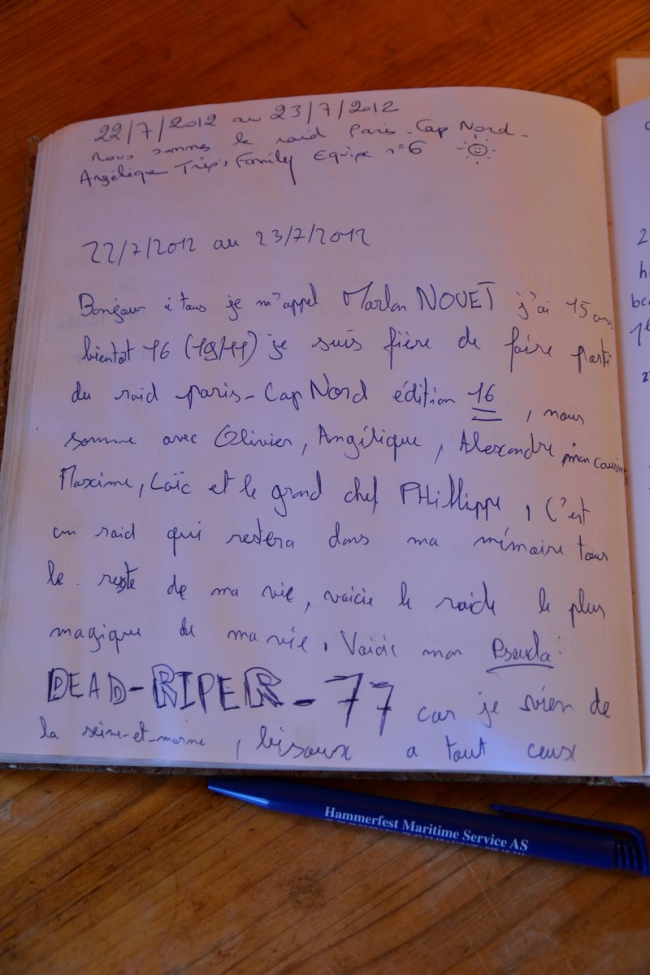 22/7/2012 au 23/7/2012
Nous sommes le raid Paris-Cap Nord-
Angélique Trip's Family Equipe n=6
22/7/2012 au 23/7/2012
Bonjour à tous je m'appel Marlon NOUET j'ai 15 ans
bientot 16 (19/11) je suis fière de faire parti
du raid paris-Cap Nord édition 16, nous
somme avec Olivier, Angélique, Alexandre mon cousin
Maxime, Loïc et le grand chef PHillippe, C'est
un raid qui restera dans ma mémoire tous
le reste de ma vie, voicie le raide le plus
magique de ma vie, Voicie mon Pseudo:
DEAD-RIPER-77 car je vien de
la seine-et-marne, bisoux a tout ceux
2
h
be
16
Hammerfest Maritime Service AS